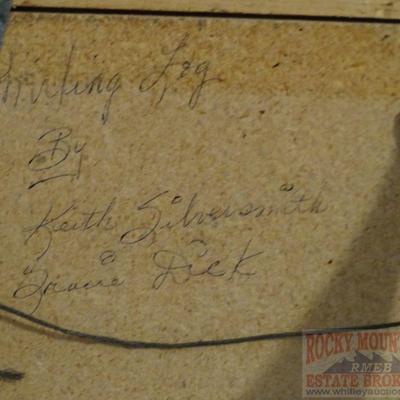 Whirling Log
By
Keith Silversmith
Gracie Dick
ROCKY MOUNT
RMEB
ESTATE BROK
www.whitleyauctio